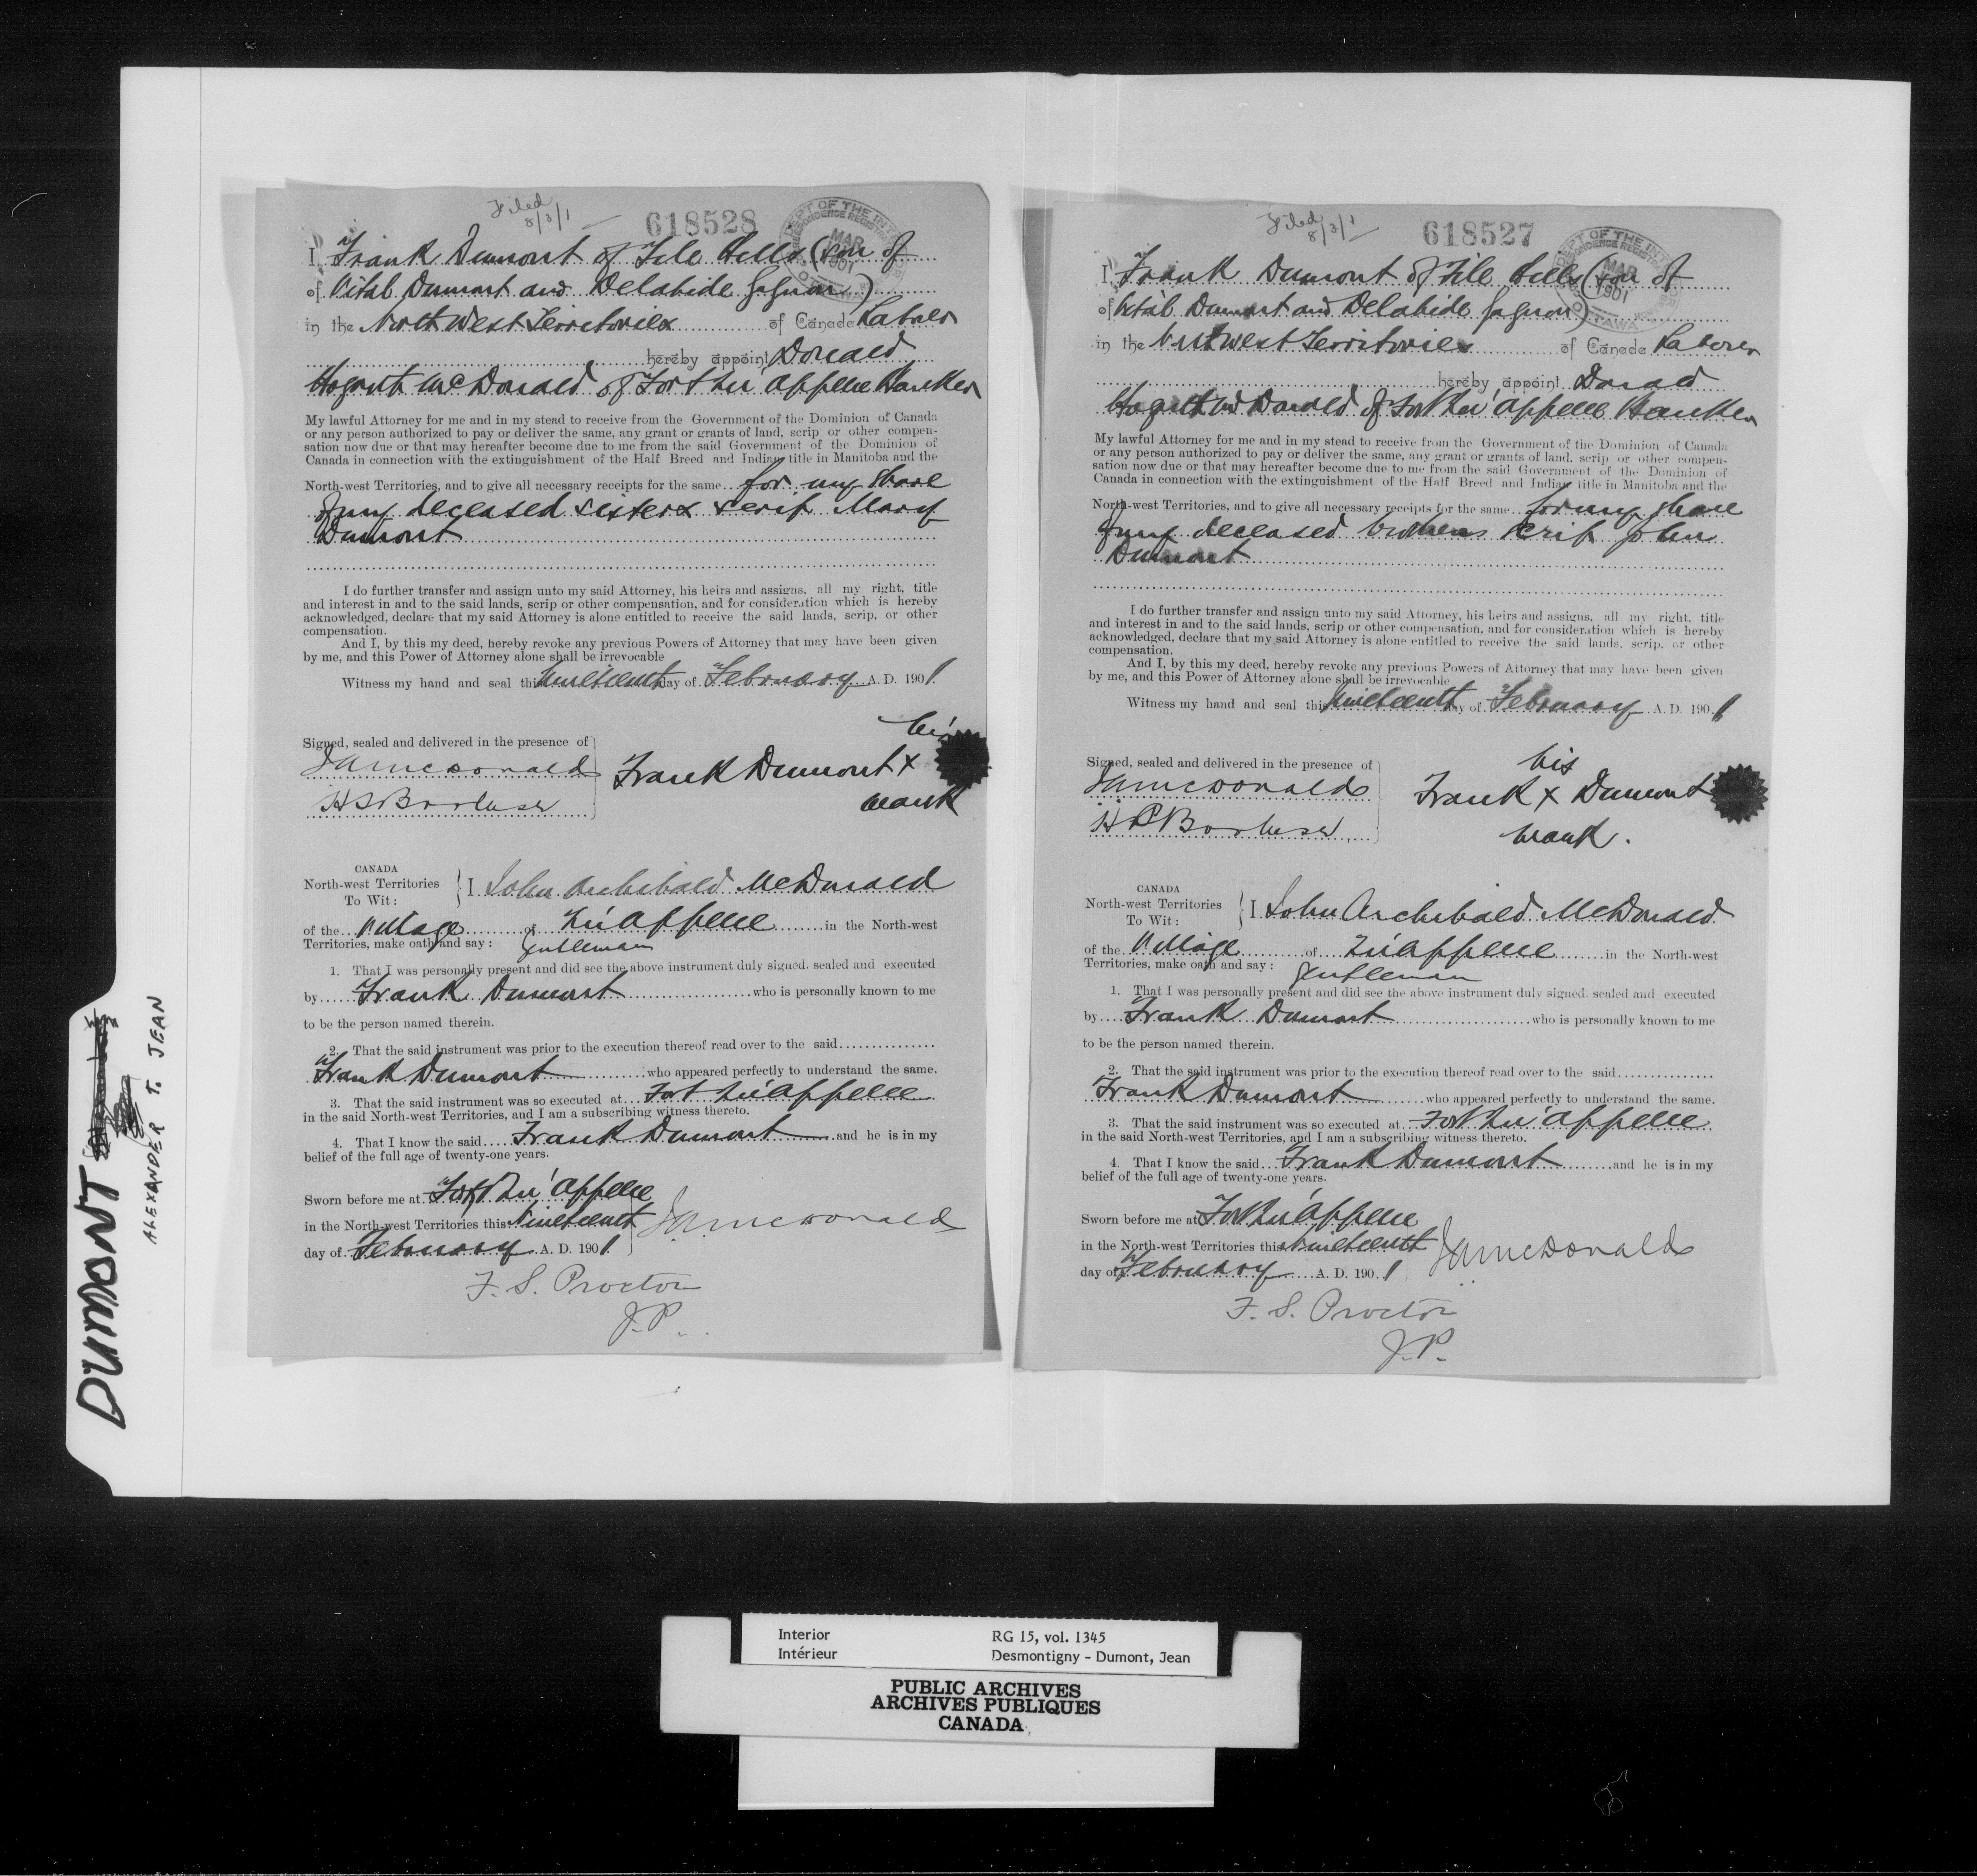 DUMONT
ALEXANDER T. JEAN
Filed
8/3/1
618528
DEPT OF THE INT
MAR
1901
OTTAWA
I, Frank Dumont of File Hills (son of
of Vital Dumont and Delahide Gagnon)
in the North West Territories of Canada Laborer
hereby appoint Donald
Hogarth McDonald of Fort Qu'Appelle Banker
My lawful Attorney for me and in my stead to receive from the Government of the Dominion of Canada
or any person authorized to pay or deliver the same, any grant or grants of land, scrip or other compen-
sation now due or that may hereafter become due to me from the said Government of the Dominion of
Canada in connection with the extinguishment of the Half Breed and Indian title in Manitoba and the
North-west Territories, and to give all necessary receipts for the same for my share
of my deceased sisters scrip Mary
Dumont
I do further transfer and assign unto my said Attorney, his heirs and assigns, all my right, title
and interest in and to the said lands, scrip or other compensation, and for consideration which is hereby
acknowledged, declare that my said Attorney is alone entitled to receive the said lands, scrip, or other
compensation.
And I, by this my deed, hereby revoke any previous Powers of Attorney that may have been given
by me, and this Power of Attorney alone shall be irrevocable
Witness my hand and seal this Nineteenth day of February A. D. 1901
Signed, sealed and delivered in the presence of
JAMcDonald
his
Frank Dumont x
mark
CANADA
North-west Territories
To Wit :
I John Archibald McDonald
of the Village of Qu'Appelle in the North-west
Territories, make oath and say : Gentleman
1. That I was personally present and did see the above instrument duly signed, sealed and executed
by Frank Dumont who is personally known to me
to be the person named therein.
2. That the said instrument was prior to the execution thereof read over to the said
Frank Dumont who appeared perfectly to understand the same.
3. That the said instrument was so executed at Fort Qu'Appelle
in the said North-west Territories, and I am a subscribing witness thereto.
4. That I know the said Frank Dumont and he is in my
belief of the full age of twenty-one years.
Sworn before me at Fort Qu'Appelle
in the North-west Territories this Nineteenth
day of February A. D. 1901
JAMcDonald
F. S. Proctor
J.P.
Filed
8/3/1
618527
DEPT OF THE INT
MAR
1901
OTTAWA
I, Frank Dumont of File Hills (son of
of Vital Dumont and Delahide Gagnon)
in the Northwest Territories of Canada Laborer
hereby appoint Donald
Hogarth McDonald of Fort Qu'Appelle Banker
My lawful Attorney for me and in my stead to receive from the Government of the Dominion of Canada
or any person authorized to pay or deliver the same, any grant or grants of land, scrip or other compen-
sation now due or that may hereafter become due to me from the said Government of the Dominion of
Canada in connection with the extinguishment of the Half Breed and Indian title in Manitoba and the
North-west Territories, and to give all necessary receipts for the same for my share
of my deceased brothers scrip John
Dumont
I do further transfer and assign unto my said Attorney, his heirs and assigns, all my right, title
and interest in and to the said lands, scrip or other compensation, and for consideration which is hereby
acknowledged, declare that my said Attorney is alone entitled to receive the said lands, scrip, or other
compensation.
And I, by this my deed, hereby revoke any previous Powers of Attorney that may have been given
by me, and this Power of Attorney alone shall be irrevocable
Witness my hand and seal this Nineteenth day of February A. D. 1901
Signed, sealed and delivered in the presence of
JAMcDonald
his
Frank x Dumont
mark.
CANADA
North-west Territories
To Wit :
I John Archibald McDonald
of the Village of Qu'Appelle in the North-west
Territories, make oath and say : Gentleman
1. That I was personally present and did see the above instrument duly signed, sealed and executed
by Frank Dumont who is personally known to me
to be the person named therein.
2. That the said instrument was prior to the execution thereof read over to the said
Frank Dumont who appeared perfectly to understand the same.
3. That the said instrument was so executed at Fort Qu'Appelle
in the said North-west Territories, and I am a subscribing witness thereto.
4. That I know the said Frank Dumont and he is in my
belief of the full age of twenty-one years.
Sworn before me at Fort Qu'Appelle
in the North-west Territories this Nineteenth
day of February A. D. 1901
JAMcDonald
F. S. Proctor
J.P.
Interior RG 15, vol. 1345
Intérieur Desmontigny - Dumont, Jean
PUBLIC ARCHIVES
ARCHIVES PUBLIQUES
CANADA